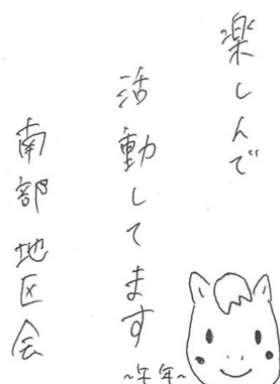 楽しんで
活動してます
南部地区会
~午年~